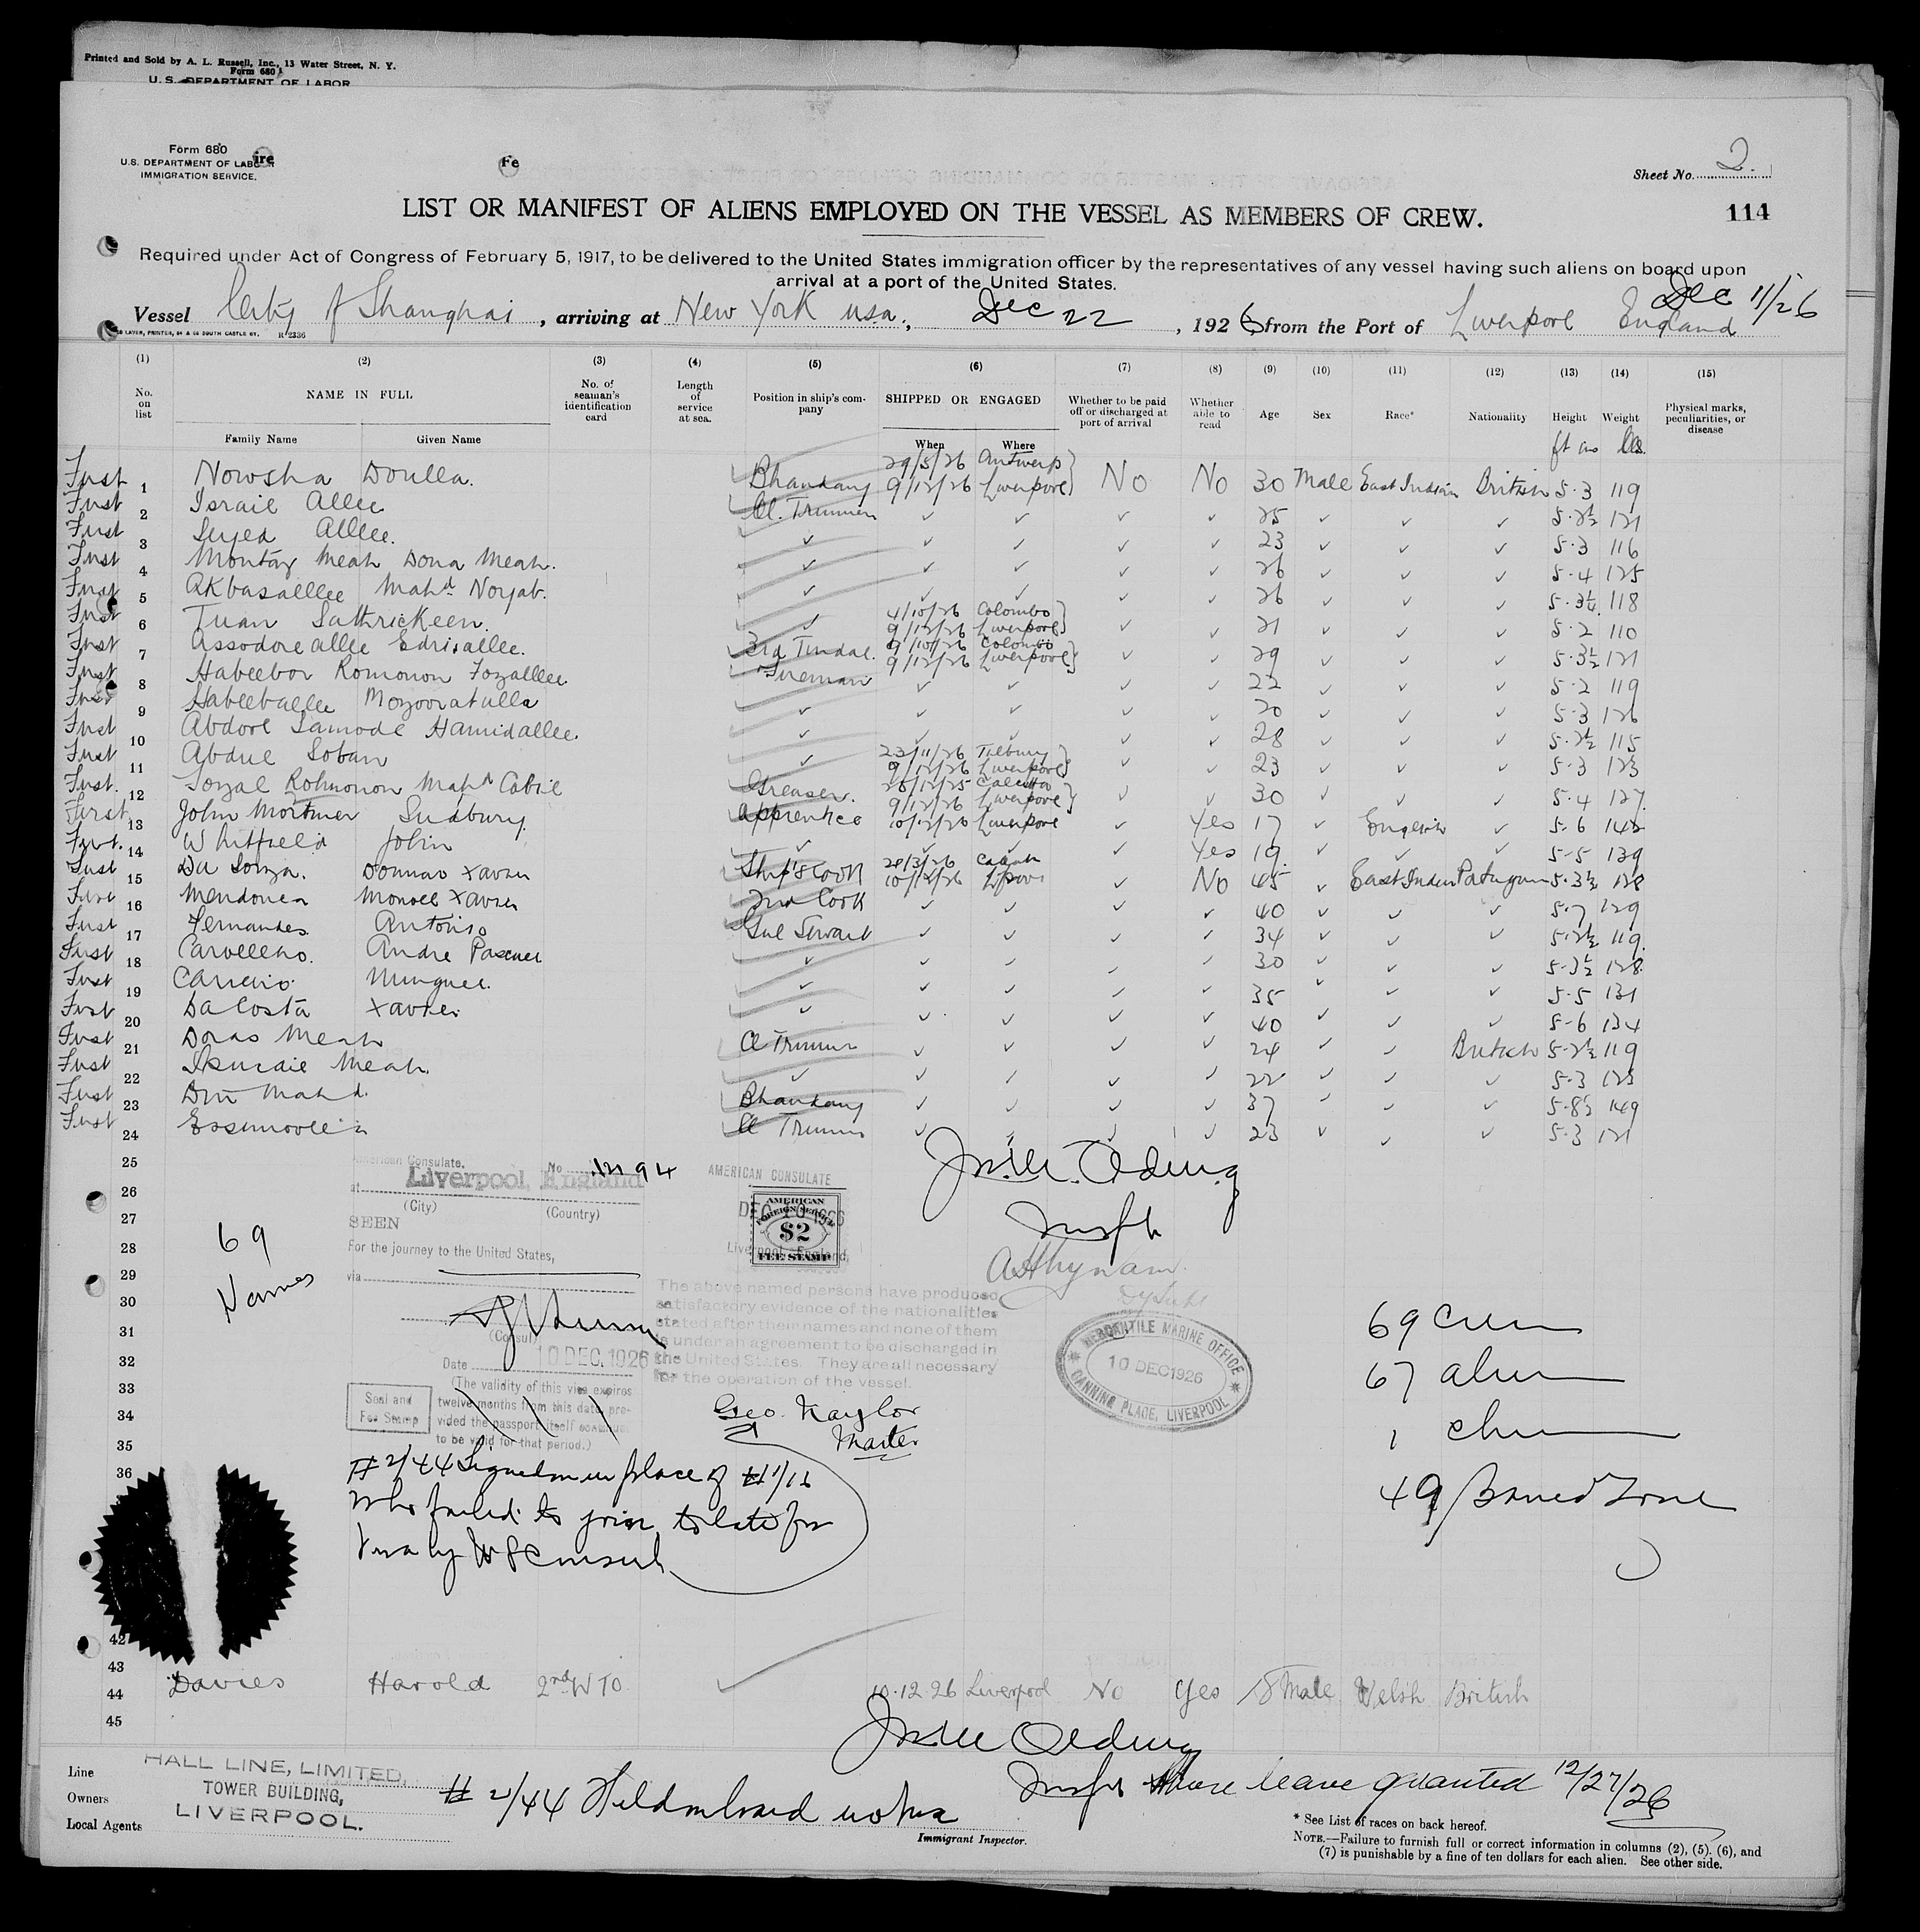 Printed and Sold by A. L. Russell, Inc., 13 Water Street, N. Y.
Form 680
U. S. DEPARTMENT OF LABOR
Form 680
U.S. DEPARTMENT OF LABOR
IMMIGRATION SERVICE.
ire
Fe
Sheet No. 2.
LIST OR MANIFEST OF ALIENS EMPLOYED ON THE VESSEL AS MEMBERS OF CREW.
114
Required under Act of Congress of February 5, 1917, to be delivered to the United States immigration officer by the representatives of any vessel having such aliens on board upon
arrival at a port of the United States.
Dec 11/26
Vessel City of Shanghai, arriving at New York usa., Dec 22, 1926 from the Port of Liverpool England
R 2336
(1) (2) (3) (4) (5) (6) (7) (8) (9) (10) (11) (12) (13) (14) (15)
No. on list
NAME IN FULL
Family Name Given Name
No. of seaman's identification card
Length of service at sea.
Position in ship's company
SHIPPED OR ENGAGED
When Where
Whether to be paid off or discharged at port of arrival
Whether able to read
Age Sex Race* Nationality Height Weight
Physical marks, peculiarities, or disease
ft ins lbs.
First 1 Nowsha Doulla. Bhandary 29/5/26 Antwerp 9/12/26 Liverpool No No 30 Male East Indian British 5.3 119
First 2 Israil Allee Cl. Trimmer ✓ ✓ ✓ ✓ 25 ✓ ✓ ✓ 5.2½ 121
First 3 Seyed Alllee. ✓ ✓ ✓ ✓ ✓ 23 ✓ ✓ ✓ 5.3 116
First 4 Montaz Meah Dona Meah. ✓ ✓ ✓ ✓ ✓ 26 ✓ ✓ ✓ 5.4 125
First 5 Akbasalllee Mahd Noyab. ✓ ✓ ✓ ✓ ✓ 26 ✓ ✓ ✓ 5.3½ 118
First 6 Tuan Sathrickeen. ✓ 4/10/26 Colombo 9/12/26 Liverpool ✓ ✓ 21 ✓ ✓ ✓ 5.2 110
First 7 Assodore allee Edrisallee. 3rd Tindal. 9/10/26 Colombo 9/12/26 Liverpool ✓ ✓ 29 ✓ ✓ ✓ 5.3½ 121
First 8 Habeebor Romonon Fozalllee Fireman ✓ ✓ ✓ ✓ 22 ✓ ✓ ✓ 5.2 119
First 9 Habeeballee Mozooratulla ✓ ✓ ✓ ✓ ✓ 20 ✓ ✓ ✓ 5.3 126
First 10 Abdorl Samode Hamidallee. ✓ ✓ ✓ ✓ ✓ 28 ✓ ✓ ✓ 5.2½ 115
First 11 Abdul Soban ✓ 23/11/26 Tilbury 9/12/26 Liverpool ✓ ✓ 23 ✓ ✓ ✓ 5.3 123
First. 12 Rohmonon Mahd Cabil Greaser. Calcutta 9/12/26 Liverpool ✓ ✓ 30 ✓ ✓ ✓ 5.4 127.
First 13 John Mortimer Sudbury Apprentice 10/12/26 Liverpool ✓ Yes 17 ✓ English ✓ 5.6 142
First. 14 Whitfield John ✓ ✓ ✓ ✓ Yes 19. ✓ ✓ ✓ 5-5 139
First 15 Da Souza. Xavier Ship's Cook 28/3/26 10/12/26 L'pool ✓ No 45 ✓ East Indian 5.3½ 128
First 16 Xavier 2nd Cook ✓ ✓ ✓ ✓ 40 ✓ ✓ ✓ 5.7 129
First 17 Fernandes Antonio ✓ ✓ ✓ ✓ 34 ✓ ✓ ✓ 5.2½ 119.
First 18 Andre ✓ ✓ ✓ ✓ ✓ 30 ✓ ✓ ✓ 5.3½ 128.
First 19 ✓ ✓ ✓ ✓ ✓ 35 ✓ ✓ ✓ 5.5 131
First 20 Da Costa Xavier ✓ ✓ ✓ ✓ ✓ 40 ✓ ✓ ✓ 5-6 134
First 21 Doras Meah Cl Trimmer ✓ ✓ ✓ ✓ 24 ✓ ✓ British 5-2½ 119
First 22 Meah. ✓ ✓ ✓ ✓ ✓ 22 ✓ ✓ ✓ 5.3 123
First 23 Din Mahd. Bhandary ✓ ✓ ✓ ✓ 37 ✓ ✓ ✓ 5-8½ 149
First 24 Cl Trimmer ✓ ✓ ✓ ✓ 23 ✓ ✓ ✓ 5.3 121
25
26
27
28
29
30
31
32
33
34
35
36
American Consulate, No. 1294
at Liverpool, England
(City) (Country)
SEEN
For the journey to the United States,
via
(Consul)
Date 10 DEC. 1926
(The validity of this visa expires
twelve months from this date, pro-
vided the passport itself continues
to be valid for that period.)
Seal and
Fee Stamp
69
Names
AMERICAN CONSULATE
DEC 10 1926
Liverpool, England,
AMERICAN
FOREIGN SERVICE
$2
FEE STAMP
The above named persons have produced
satisfactory evidence of the nationalities
stated after their names and none of them
is under an agreement to be discharged in
the United States. They are all necessary
for the operation of the vessel.
Geo. Naylor
Master
MERCANTILE MARINE OFFICE
10 DEC 1926
CANNING PLACE, LIVERPOOL
69 Crew
67 alien
1
49 Barred Zone
# 2/44 Signed on in place of #1/16
who failed to join, to late for
visa by US Consul
42
43
44 Davies Harold 2nd W TO ✓ 10.12.26 Liverpool No Yes 18 Male Welsh British
45
Line
Owners
Local Agents
HALL LINE, LIMITED,
TOWER BUILDING,
LIVERPOOL.
# 2/44 Held on board no visa
Shore leave granted 12/27/26
Immigrant Inspector.
* See List of races on back hereof.
NOTE.—Failure to furnish full or correct information in columns (2), (5), (6), and
(7) is punishable by a fine of ten dollars for each alien. See other side.